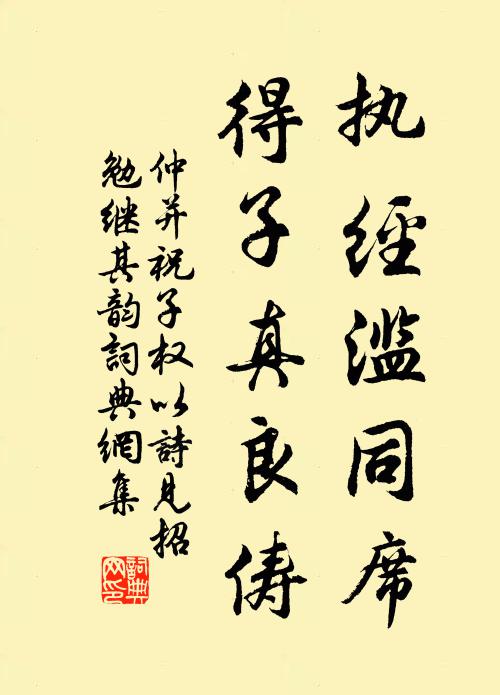 执經滥同席
得子真良俦
仲并祝子权以詩見招
勉继其韵詞典網集
詞典
网印